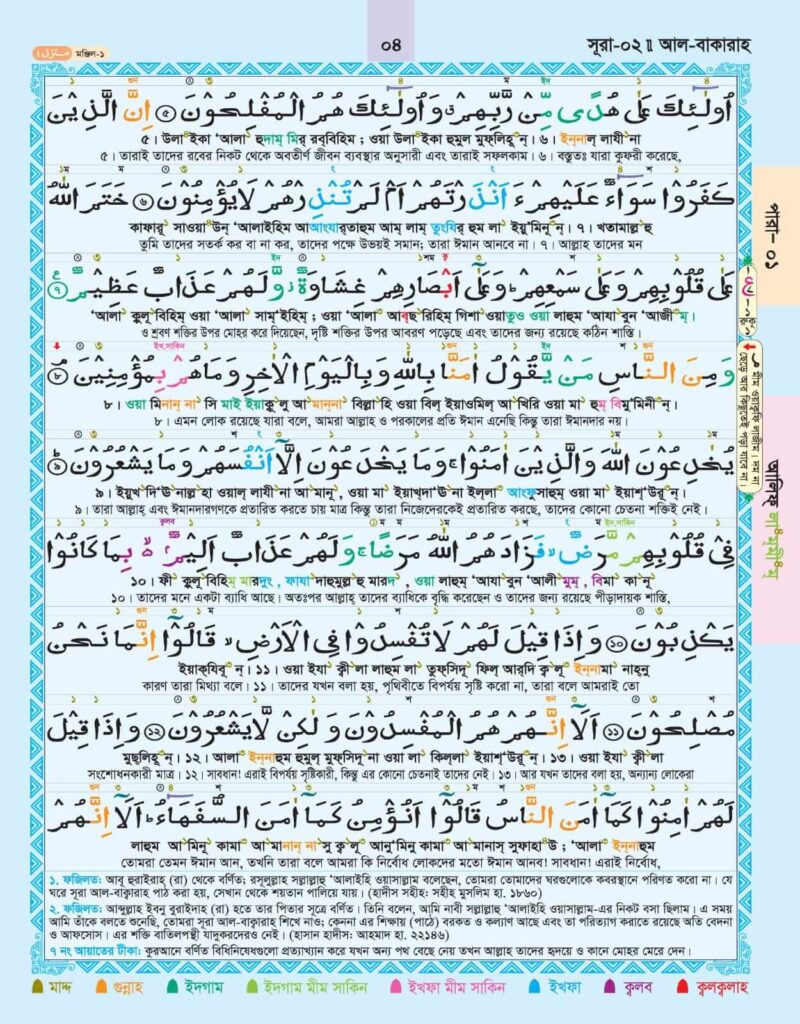 منزل ١ মঞ্জিল-১
০৪
সূরা-০২ ৷৷ আল-বাকারাহ
اُولٰٓئِكَ عَلٰى هُدًى مِّنْ رَّبِّهِمْ ۗ وَاُولٰٓئِكَ هُمُ الْمُفْلِحُوْنَ ۝٥ اِنَّ الَّذِيْنَ
৫। উলা ইকা ‘আলা হুদাম্ মির্ রব্বিহিম ; ওয়া উলা ইকা হুমুল মুফ্লিহূ ন্। ৬। ইন্নাল্ লাযী না
৫। তারাই তাদের রবের নিকট থেকে অবতীর্ণ জীবন ব্যবস্থার অনুসারী এবং তারাই সফলকাম। ৬। বস্তুতঃ যারা কুফরী করেছে,
كَفَرُوْا سَوَآءٌ عَلَيْهِمْ ءَاَنْذَرْتَهُمْ اَمْ لَمْ تُنْذِرْهُمْ لَا يُؤْمِنُوْنَ ۝٦ خَتَمَ اللّٰهُ
কাফারূ সাওয়া উন্ ‘আলাইহিম আআংযার্‌তাহুম আম্ লাম্ তুংযির্ হুম লা ইয়ু’মিনূ ন্। ৭। খতামাল্লা হু
তুমি তাদের সতর্ক কর বা না কর, তাদের পক্ষে উভয়ই সমান; তারা ঈমান আনবে না। ৭। আল্লাহ তাদের মন
عَلٰى قُلُوْبِهِمْ وَعَلٰى سَمْعِهِمْ ؕ وَعَلٰٓى اَبْصَارِهِمْ غِشَاوَةٌ ۫ وَّلَهُمْ عَذَابٌ عَظِيْمٌ ۝٧
‘আলা কুলূ বিহিম্ ওয়া ‘আলা সাম্’ইহিম্ ; ওয়া ‘আলা আব্ছ রিহিম্ গিশা ওয়াতুও ওয়া লাহুম ‘আযা বুন ‘আজী ম্।
ও শ্রবণ শক্তির উপর মোহর করে দিয়েছেন, দৃষ্টি শক্তির উপর আবরণ পড়েছে এবং তাদের জন্য রয়েছে কঠিন শাস্তি।
وَمِنَ النَّاسِ مَنْ يَّقُوْلُ اٰمَنَّا بِاللّٰهِ وَبِالْيَوْمِ الْاٰخِرِ وَمَا هُمْ بِمُؤْمِنِيْنَ ۝٨
৮। ওয়া মিনান্ না সি মাই ইয়াকূ লু আ মান্না বিল্লা হি ওয়া বিল ইয়াওমিল আ খিরি ওয়া মা হুম্ বিমু’মিনী ন্।
৮। এমন লোক রয়েছে যারা বলে, আমরা আল্লাহ ও পরকালের প্রতি ঈমান এনেছি কিন্তু তারা ঈমানদার নয়।
يُخٰدِعُوْنَ اللّٰهَ وَالَّذِيْنَ اٰمَنُوْا ۚ وَمَا يَخْدَعُوْنَ اِلَّآ اَنْفُسَهُمْ وَمَا يَشْعُرُوْنَ ۝٩
৯। ইয়ুখ দি‘ঊ নাল্ল হা ওয়াল্ লাযী না আ মানূ , ওয়া মা ইয়াখ্দা‘ঊ না ইল্লা আংফুসাহুম্ ওয়া মা ইয়াশ্‘উরূ ন্।
৯। তারা আল্লাহ্ এবং ঈমানদারগণকে প্রতারিত করতে চায় মাত্র কিন্তু তারা নিজেদেরকেই প্রতারিত করছে, তাদের কোনো চেতনা শক্তিই নেই।
فِيْ قُلُوْبِهِمْ مَّرَضٌ ۙ فَزَادَهُمُ اللّٰهُ مَرَضًا ۚ وَلَهُمْ عَذَابٌ اَلِيْمٌ ۢ ۙ بِمَا كَانُوْا
১০। ফী কুলূ বিহিম্ মারদুং , ফাযা দাহুমুল্ল হু মারদ , ওয়া লাহুম্ ‘আযা বুন ‘আলী মুম্ , বিমা কা নূ
১০। তাদের মনে একটা ব্যাধি আছে। অতঃপর আল্লাহ্ তাদের ব্যাধিকে বৃদ্ধি করেছেন ও তাদের জন্য রয়েছে পীড়াদায়ক শাস্তি,
يَكْذِبُوْنَ ۝١٠ وَاِذَا قِيْلَ لَهُمْ لَا تُفْسِدُوْا فِي الْاَرْضِ ۙ قَالُوْٓا اِنَّمَا نَحْنُ
ইয়াক্‌যিবূ ন্। ১১। ওয়া ইযা কী লা লাহুম লা তুফ্‌সিদূ ফিল্ আর্‌দি ক্ব লূ ইন্নামা নাহ্‌নু
কারণ তারা মিথ্যা বলে। ১১। তাদের যখন বলা হয়, পৃথিবীতে বিপর্যয় সৃষ্টি করো না, তারা বলে আমরাই তো
مُصْلِحُوْنَ ۝١١ اَلَآ اِنَّهُمْ هُمُ الْمُفْسِدُوْنَ وَلٰكِنْ لَّا يَشْعُرُوْنَ ۝١٢ وَاِذَا قِيْلَ
মুছ্‌লিহূ ন্। ১২। আলা ইন্নাহুম হুমুল্ মুফ্‌সিদূ না ওয়া লা কিল্লা ইয়াশ্‘উরূ ন্। ১৩। ওয়া ইযা কী লা
সংশোধনকারী মাত্র। ১২। সাবধান! এরাই বিপর্যয় সৃষ্টিকারী, কিন্তু এর কোনো চেতনাই তাদের নেই। ১৩। আর যখন তাদের বলা হয়, অন্যান্য লোকেরা
لَهُمْ اٰمِنُوْا كَمَآ اٰمَنَ النَّاسُ قَالُوْٓا اَنُؤْمِنُ كَمَآ اٰمَنَ السُّفَهَآءُ ؕ اَلَآ اِنَّهُمْ
লাহুম আ মিনূ কামা আ মানান্ না সু ক্ব লূ আনু’মিনু কামা আ মানাস্ সুফাহা উ ; ‘আলা ইন্নাহুম
তোমরা তেমন ঈমান আন, তখনি তারা বলে আমরা কি নির্বোধ লোকদের মতো ঈমান আনব! সাবধান! এরাই নির্বোধ,
১. ফজিলত: আবূ হুরাইরাহ্ (রা) থেকে বর্ণিত; রসূলুল্লাহ সল্লাল্লাহু ‘আলাইহি ওয়াসাল্লাম বলেছেন, তোমরা তোমাদের ঘরগুলোকে কবরস্থানে পরিণত করো না। যে
ঘরে সূরা আল-বাক্বারাহ পাঠ করা হয়, সেখান থেকে শয়তান পালিয়ে যায়। (হাদীস সহীহ: সহীহ মুসলিম হা. ১৮৬০)
২. ফজিলত: আব্দুল্লাহ ইবনু বুরাইদাহ (রা) হতে তার পিতার সূত্রে বর্ণিত। তিনি বলেন, আমি নাবী সল্লাল্লাহু ‘আলাইহি ওয়াসাল্লাম-এর নিকট বসা ছিলাম। এ সময়
আমি তাঁকে বলতে শুনেছি, তোমরা সূরা আল-বাক্বারাহ শিখে নাও; কেননা এর শিক্ষায় (পাঠে) বরকত ও কল্যাণ আছে এবং তা পরিত্যাগ করাতে রয়েছে অতি বেদনা
ও আফসোস। এর শক্তি বাতিলপন্থী যাদুকরদেরও নেই। (হাসান হাদীস: আহমাদ হা. ২২১৪৬)
৭ নং আয়াতের টীকা: কুরআনে বর্ণিত বিধিনিষেধগুলো প্রত্যাখ্যান করে যখন অন্য পথ বেছে নেয় তখন আল্লাহ তাদের হৃদয়ে ও কানে মোহর মেরে দেন।
মাদ্দ গুন্নাহ ইদগাম ইদগাম মীম সাকিন ইখফা মীম সাকিন ইখফা ক্বলব ক্বলক্বলাহ
পারা- ০১
আলিফ্ লা ম্ মী ম্